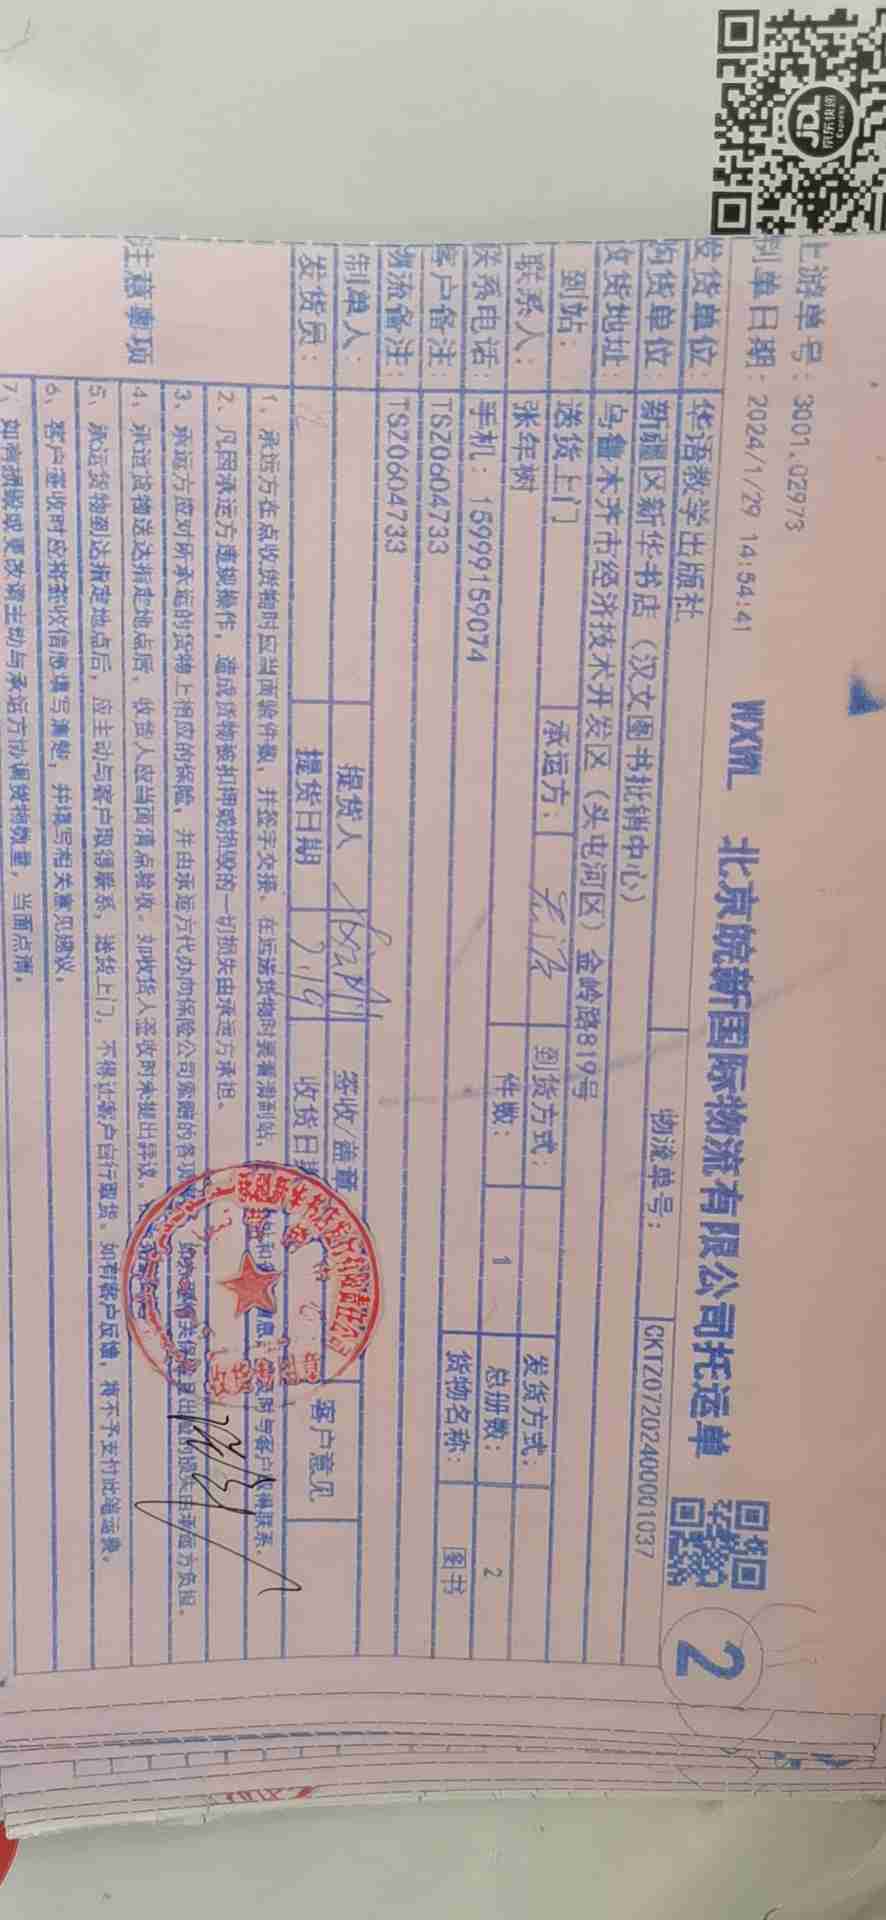 JDL
京东快递
Express
上游单号：3001.02973
制单日期：2024/1/29 14:54:41
WXWL 北京皖新国际物流有限公司托运单
2
发货单位：华语教学出版社
物流单号：CKTZ07202400001037
购货单位：新疆区新华书店（汉文图书批销中心）
收货地址：乌鲁木齐市经济技术开发区（头屯河区）金岭路819号
到站：送货上门 承运方： 到货方式： 发货方式：
联系人：张年树 件数：1 总册数：2
联系电话：手机：15999159074 货物名称：图书
客户备注：TSZ0604733
物流备注：TSZ0604733
制单人： 提货人 签收/盖章 客户意见
发货员： 提货日期 收货日期
注意事项
1、承运方在点收货物时应当面验件数，并签字交接。在运送货物时要看清到站、 与客户取得联系。
2、凡因承运方违规操作，造成货物被扣押或损毁的一切损失由承运方承担。
3、承运方应对所承运的货物上相应的保险，并由承运方代办向保险公司索赔的各项 损失由承运方负担。
4、承运货物送达指定地点后，收货人应当面清点验收。如收货人签收时未提出异议，
5、承运货物到达指定地点后，应主动与客户取得联系，送货上门，不得让客户自行取货。如有客户反馈，将不予支付此笔运费。
6、客户签收时应将签收信息填写清楚，并填写相关意见建议。
7、如有损毁或更改须主动与承运方协调货物数量，当面点清。